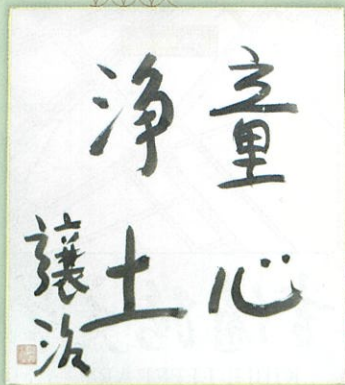 童心
浄土
譲治